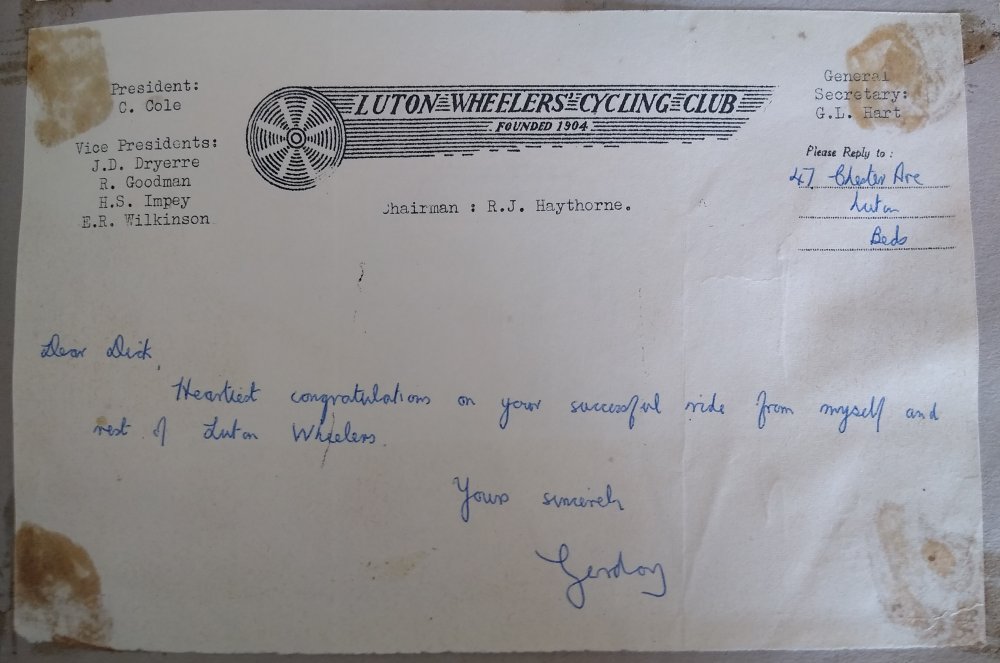 President:
C. Cole
Vice Presidents:
J.D. Dryerre
R. Goodman
H.S. Impey
E.R. Wilkinson
LUTON WHEELERS' CYCLING CLUB
FOUNDED 1904
Chairman : R.J. Haythorne.
General
Secretary:
G.L. Hart
Please Reply to :
47 Chester Ave
Luton
Beds
Dear Dick,
Heartiest congratulations on your successful ride from myself and
rest of Luton Wheelers.
Yours sincerely
Gordon